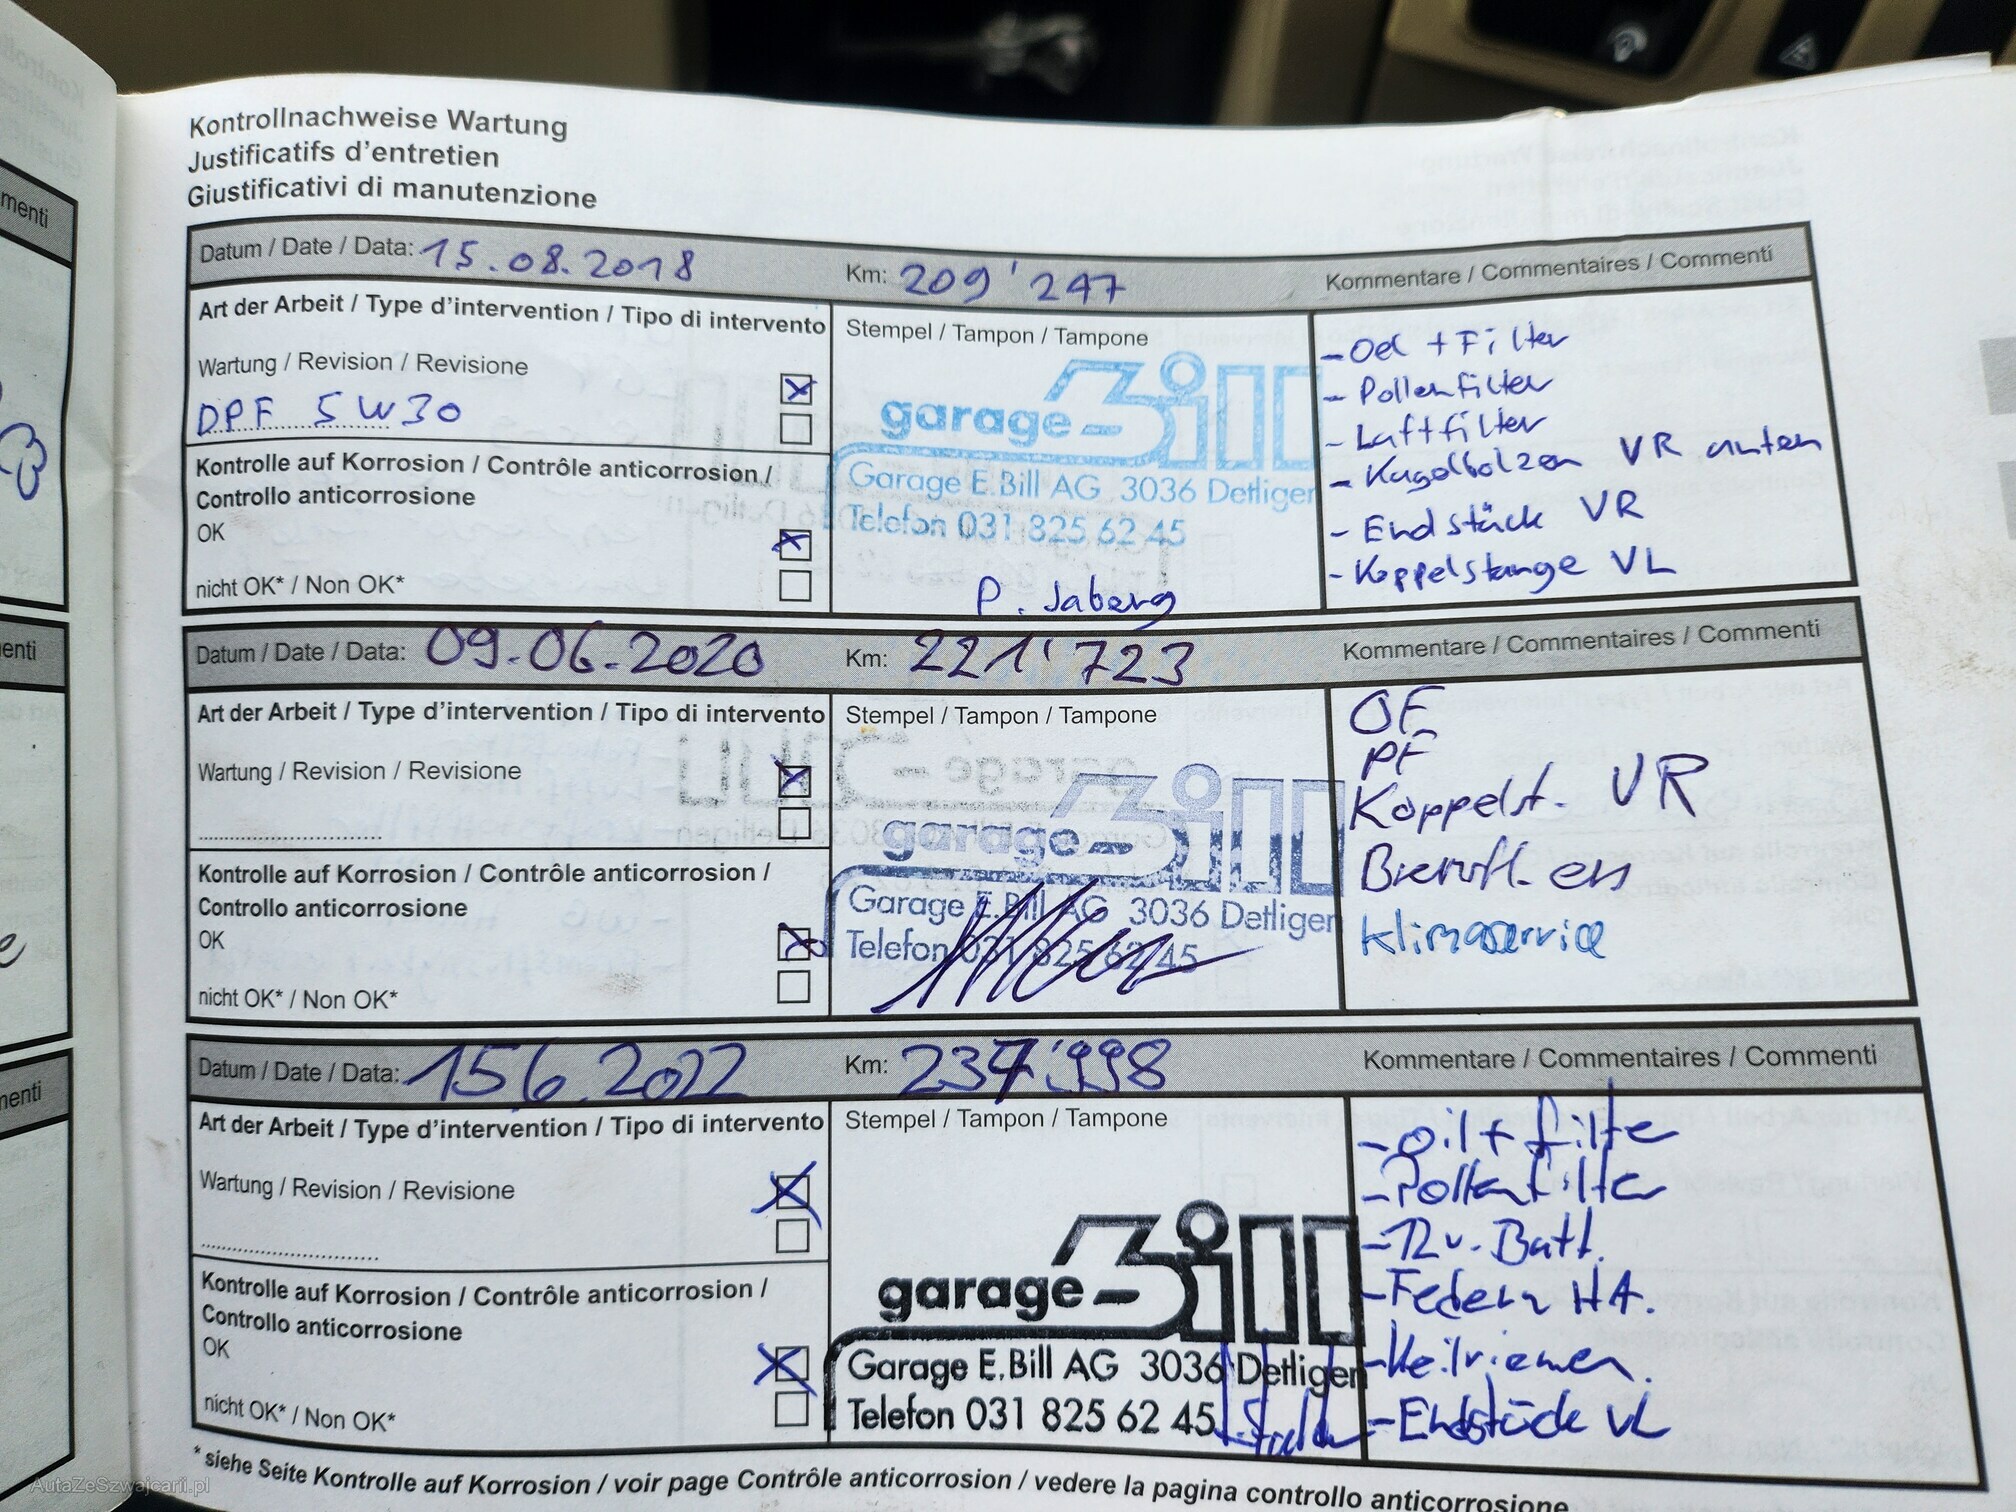 Kontrollnachweise Wartung
Justificatifs d'entretien
Giustificativi di manutenzione
Datum / Date / Data: 15.08.2018 Km: 209'247 Kommentare / Commentaires / Commenti
Art der Arbeit / Type d'intervention / Tipo di intervento
Stempel / Tampon / Tampone
Wartung / Revision / Revisione
DPF 5W30
Kontrolle auf Korrosion / Contrôle anticorrosion /
Controllo anticorrosione
OK
nicht OK* / Non OK*
garage Bill
Garage E.Bill AG 3036 Detligen
Telefon 031 825 62 45
P. Jaberg
- Oel + Filter
- Pollenfilter
- Luftfilter
- Kugelbolzen VR unten
- Endstück VR
- Koppelstange VL
Datum / Date / Data: 09.06.2020 Km: 221'723 Kommentare / Commentaires / Commenti
Art der Arbeit / Type d'intervention / Tipo di intervento
Stempel / Tampon / Tampone
Wartung / Revision / Revisione
Kontrolle auf Korrosion / Contrôle anticorrosion /
Controllo anticorrosione
OK
nicht OK* / Non OK*
garage Bill
Garage E.Bill AG 3036 Detligen
Telefon 031 825 62 45
OF
PF
Koppelst. VR
Bremsfl. ern
Klimaservice
Datum / Date / Data: 15.6.2022 Km: 237'998 Kommentare / Commentaires / Commenti
Art der Arbeit / Type d'intervention / Tipo di intervento
Stempel / Tampon / Tampone
Wartung / Revision / Revisione
Kontrolle auf Korrosion / Contrôle anticorrosion /
Controllo anticorrosione
OK
nicht OK* / Non OK*
garage Bill
Garage E.Bill AG 3036 Detligen
Telefon 031 825 62 45
- Oil + Filter
- Pollenfilter
- 12v. Batt.
- Federn HA.
- Keilriemen.
- Endstück VL
* siehe Seite Kontrolle auf Korrosion / voir page Contrôle anticorrosion / vedere la pagina controllo anticorrosione
AutaZeSzwajcarii.pl